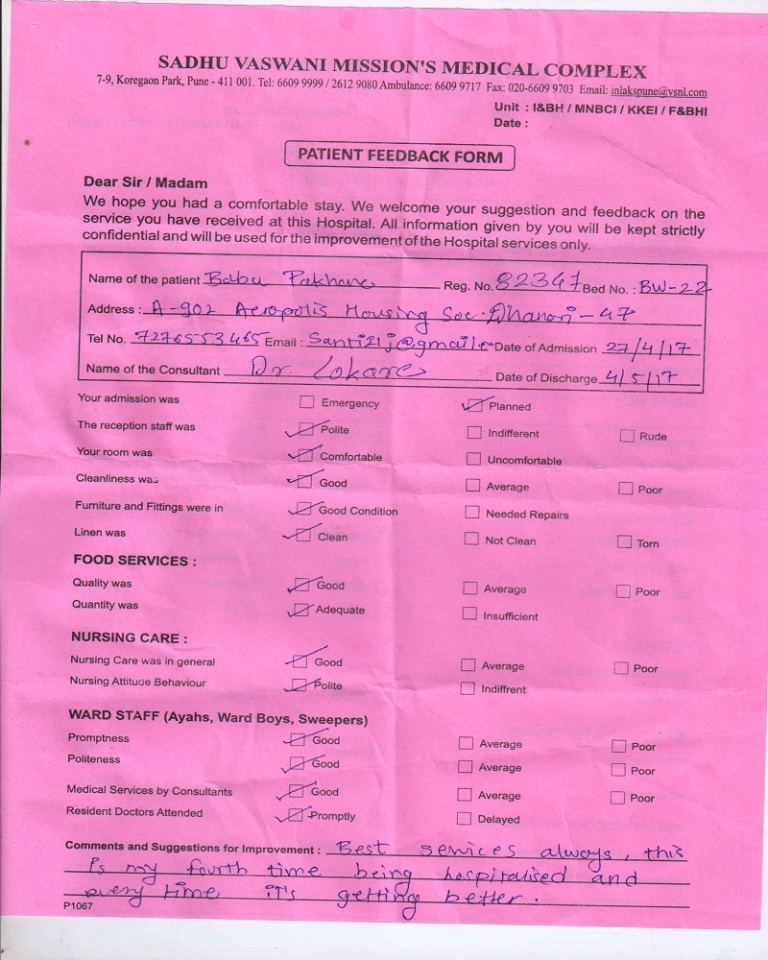 SADHU VASWANI MISSION'S MEDICAL COMPLEX
7-9, Koregaon Park, Pune - 411 001. Tel: 6609 9999 / 2612 9080 Ambulance: 6609 9717 Fax: 020-6609 9703 Email: inlakspune@vsnl.com
Unit : I&BH / MNBCI / KKEI / F&BHI
Date :
PATIENT FEEDBACK FORM
Dear Sir / Madam
We hope you had a comfortable stay. We welcome your suggestion and feedback on the
service you have received at this Hospital. All information given by you will be kept strictly
confidential and will be used for the improvement of the Hospital services only.
Name of the patient Babu Pakhare Reg. No. 82347 Bed No. : BW-22
Address : A-902 Aeropolis Housing Soc. Dhanori - 47
Tel No. 7276553465 Email : Santi21j@gmail.c Date of Admission 27/4/17
Name of the Consultant Dr. Lokare Date of Discharge 4/5/17
Your admission was Emergency Planned
The reception staff was Polite Indifferent Rude
Your room was Comfortable Uncomfortable
Cleanliness was Good Average Poor
Furniture and Fittings were in Good Condition Needed Repairs
Linen was Clean Not Clean Torn
FOOD SERVICES :
Quality was Good Average Poor
Quantity was Adequate Insufficient
NURSING CARE :
Nursing Care was in general Good Average Poor
Nursing Attitude Behaviour Polite Indiffrent
WARD STAFF (Ayahs, Ward Boys, Sweepers)
Promptness Good Average Poor
Politeness Good Average Poor
Medical Services by Consultants Good Average Poor
Resident Doctors Attended Promptly Delayed
Comments and Suggestions for Improvement : Best services always, this
is my fourth time being hospitalised and
every time it's getting better.
P1067